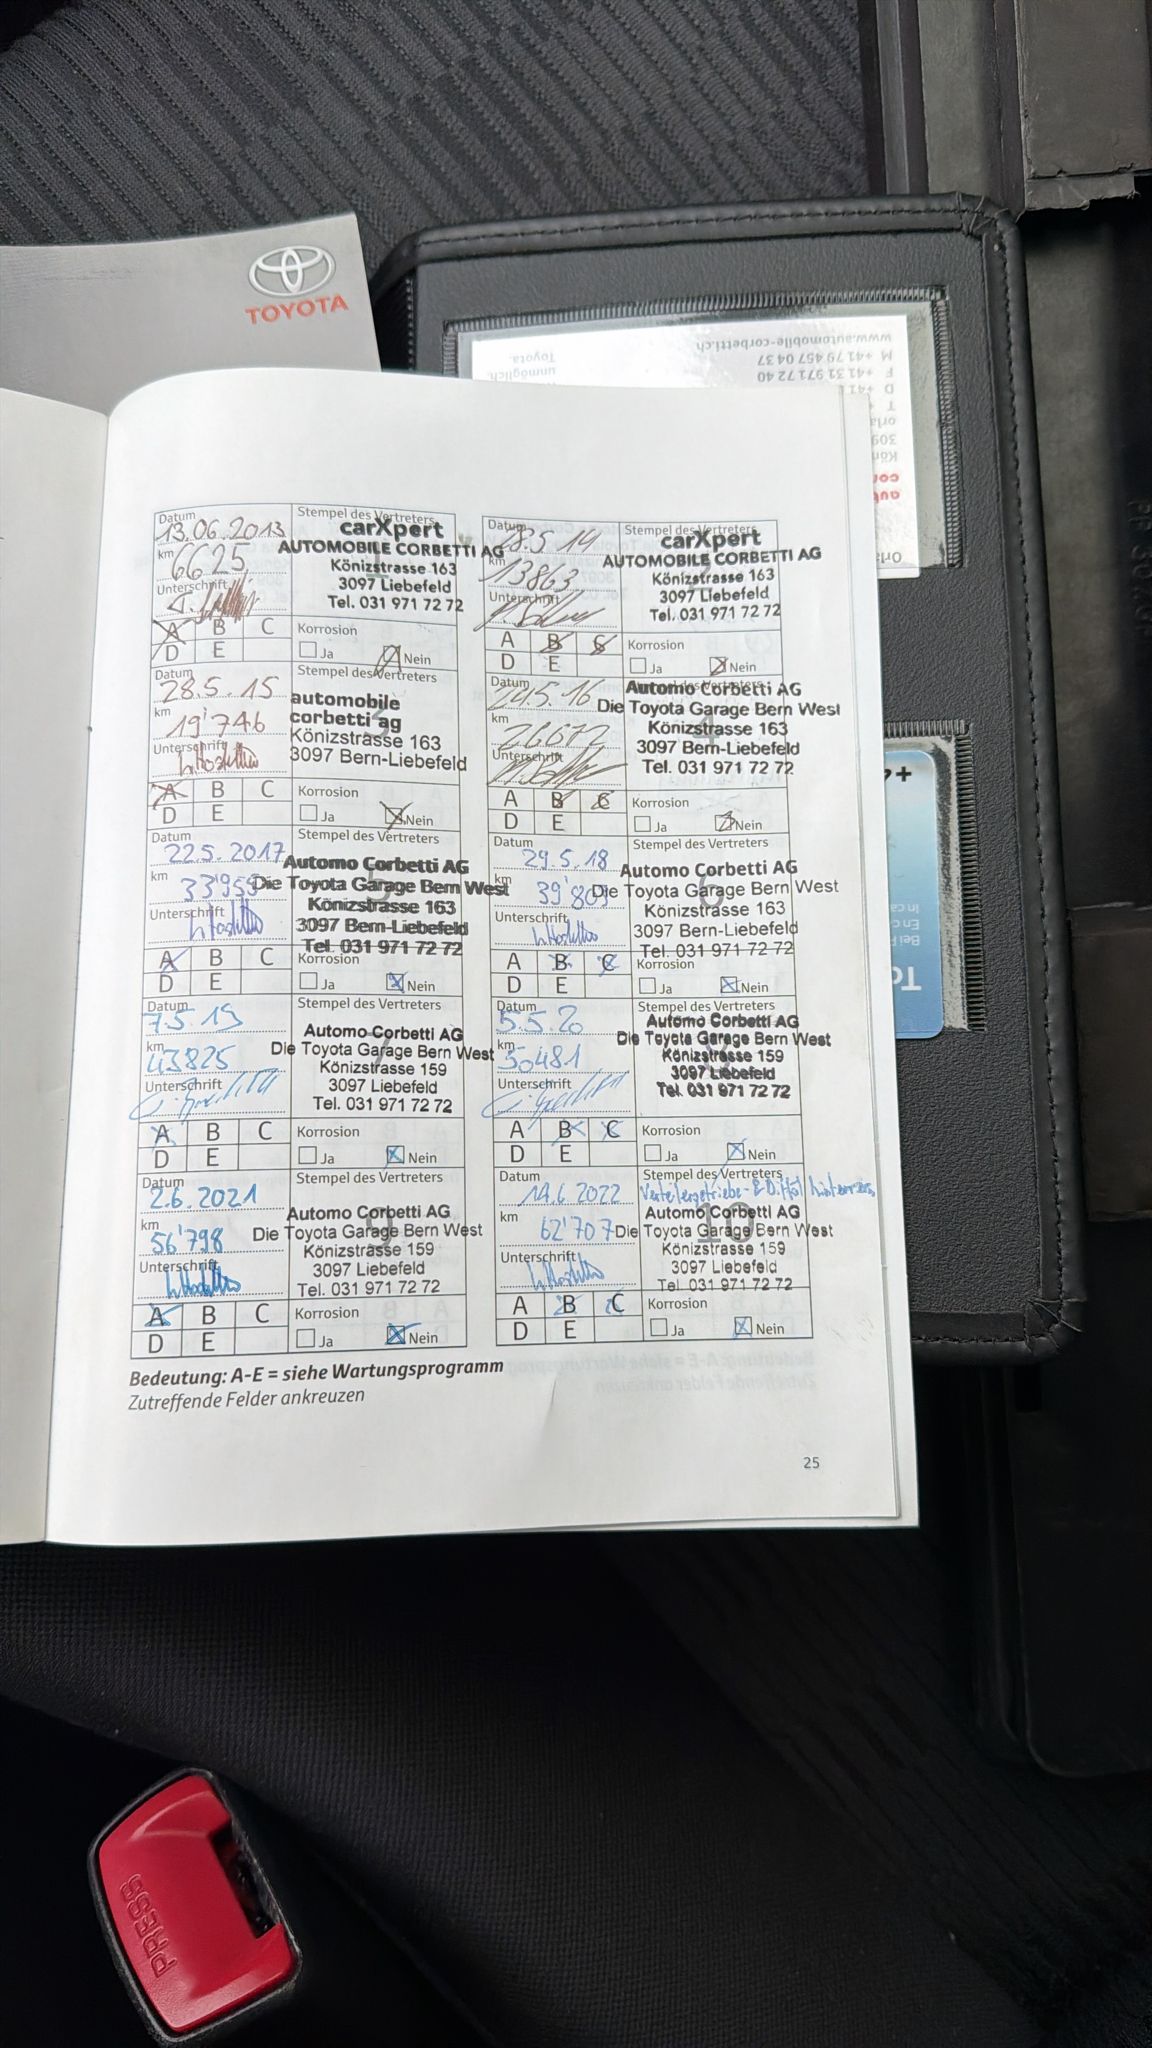 TOYOTA
www.automobile-corbetti.ch
M +41 79 457 04 37
F +41 31 971 72 40
Toyota.
unmöglich.
Datum
13.06.2013
km
6625
Unterschrift
Stempel des Vertreters
carXpert
AUTOMOBILE CORBETTI AG
Könizstrasse 163
3097 Liebefeld
Tel. 031 971 72 72
A B C
D E
Korrosion
Ja Nein
Datum
28.5.14
km
13863
Unterschrift
Stempel des Vertreters
carXpert
AUTOMOBILE CORBETTI AG
Könizstrasse 163
3097 Liebefeld
Tel. 031 971 72 72
A B C
D E
Korrosion
Ja Nein
Datum
28.5.15
km
19'746
Unterschrift
Stempel des Vertreters
3
automobile
corbetti ag
Könizstrasse 163
3097 Bern-Liebefeld
A B C
D E
Korrosion
Ja Nein
Datum
24.5.16
km
26672
Unterschrift
Stempel des Vertreters
4
Automo Corbetti AG
Die Toyota Garage Bern West
Könizstrasse 163
3097 Bern-Liebefeld
Tel. 031 971 72 72
A B C
D E
Korrosion
Ja Nein
Datum
22.5.2017
km
33'955
Unterschrift
Stempel des Vertreters
5
Automo Corbetti AG
Die Toyota Garage Bern West
Könizstrasse 163
3097 Bern-Liebefeld
Tel. 031 971 72 72
A B C
D E
Korrosion
Ja Nein
Datum
29.5.18
km
39'809
Unterschrift
Stempel des Vertreters
6
Automo Corbetti AG
Die Toyota Garage Bern West
Könizstrasse 163
3097 Bern-Liebefeld
Tel. 031 971 72 72
A B C
D E
Korrosion
Ja Nein
Datum
7.5.19
km
43825
Unterschrift
Stempel des Vertreters
Automo Corbetti AG
Die Toyota Garage Bern West
Könizstrasse 159
3097 Liebefeld
Tel. 031 971 72 72
A B C
D E
Korrosion
Ja Nein
Datum
5.5.20
km
50481
Unterschrift
Stempel des Vertreters
Automo Corbetti AG
Die Toyota Garage Bern West
Könizstrasse 159
3097 Liebefeld
Tel. 031 971 72 72
A B C
D E
Korrosion
Ja Nein
Datum
2.6.2021
km
56'798
Unterschrift
Stempel des Vertreters
9
Automo Corbetti AG
Die Toyota Garage Bern West
Könizstrasse 159
3097 Liebefeld
Tel. 031 971 72 72
A B C
D E
Korrosion
Ja Nein
Datum
14.6.2022
km
62'707
Unterschrift
Stempel des Vertreters
Verteilergetriebe-
10
Automo Corbetti AG
Die Toyota Garage Bern West
Könizstrasse 159
3097 Liebefeld
Tel. 031 971 72 72
A B C
D E
Korrosion
Ja Nein
Bedeutung: A-E = siehe Wartungsprogramm
Zutreffende Felder ankreuzen
25
PRESS